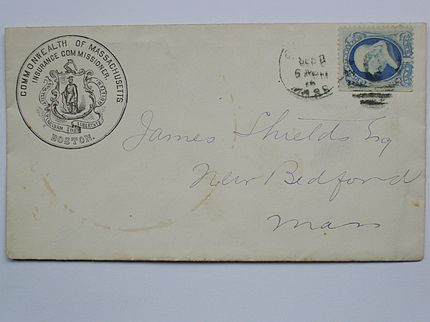 COMMONWEALTH OF MASSACHUSETTS
INSURANCE COMMISSIONER.
BOSTON.
James Shields Esq
New Bedford
Mass